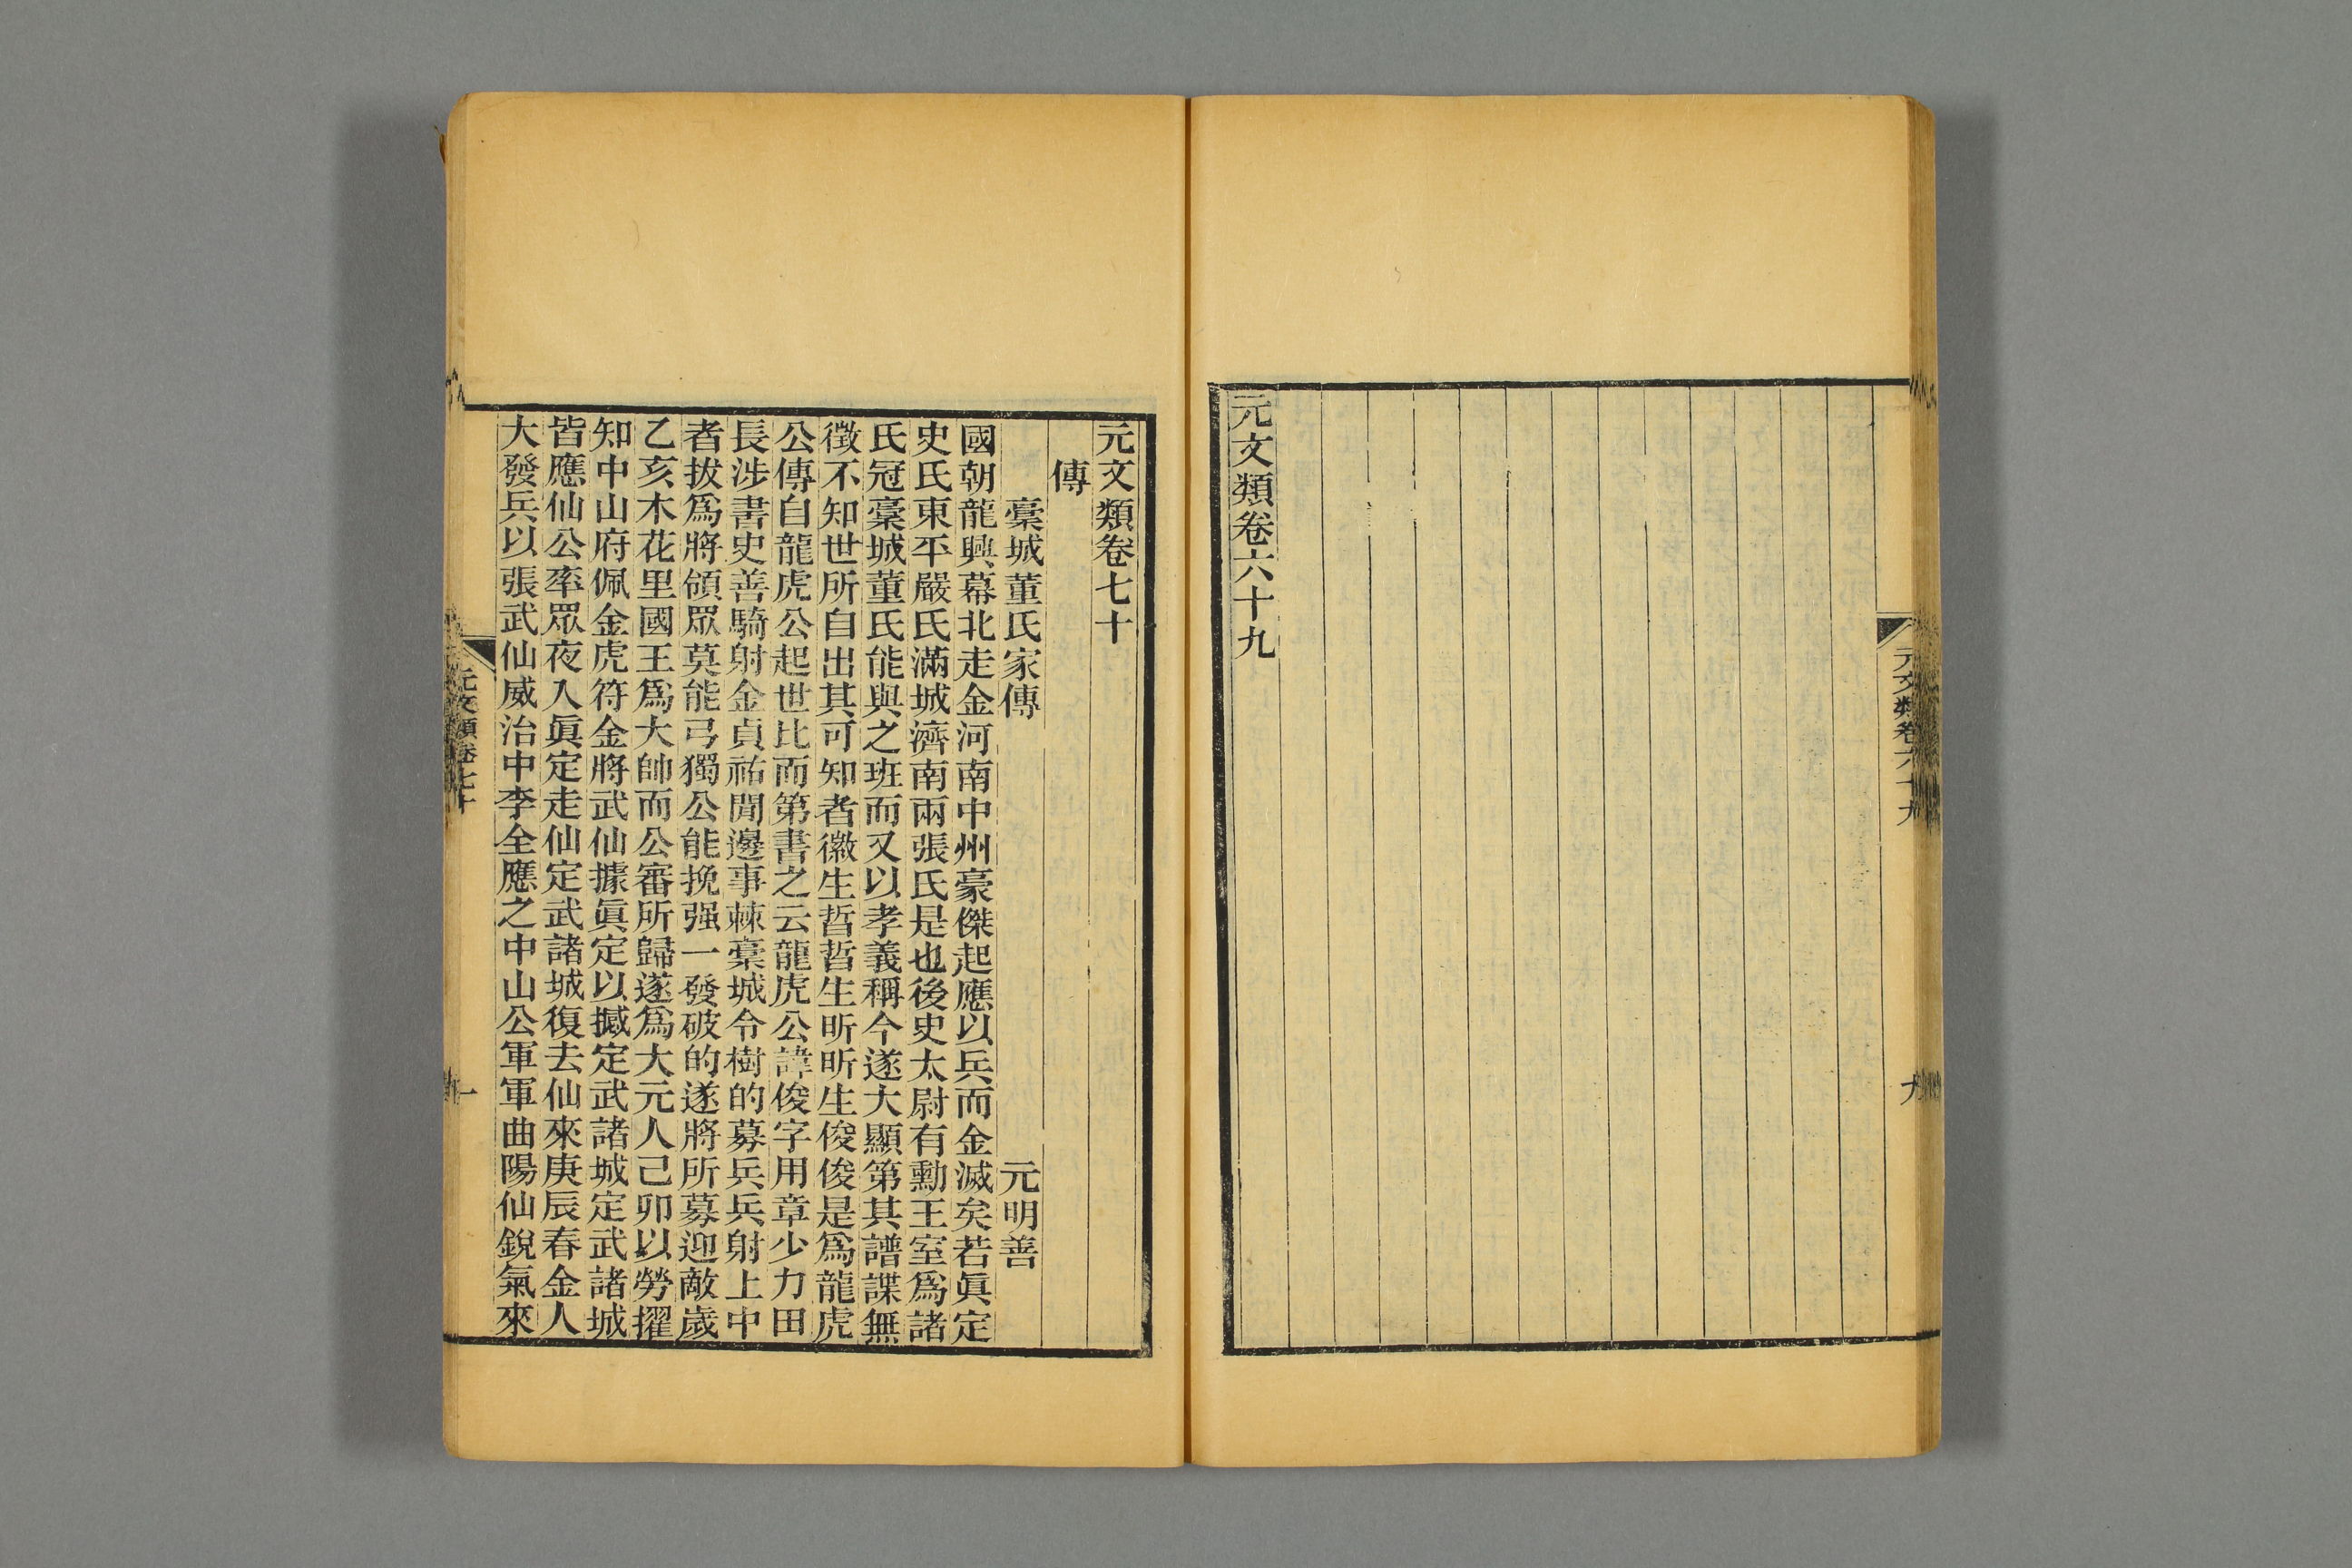 元文類卷六十九
九
元文類卷六十九
元文類卷七十
傳
藁城董氏家傳 元明善
國朝龍興幕北走金河南中州豪傑起應以兵而金滅矣若眞定
史氏東平嚴氏滿城濟南兩張氏是也後史太尉有勳王室爲諸
氏冠藁城董氏能與之班而又以孝義稱今遂大顯第其譜諜無
徵不知世所自出其可知者徽生晢晢生昕昕生俊俊是爲龍虎
公傳自龍虎公起世比而第書之云龍虎公諱俊字用章少力田
長涉書史善騎射金貞祐閒邊事棘藁城令樹的募兵兵射上中
者拔爲將領眾莫能弓獨公能挽强一發破的遂將所募迎敵歲
乙亥木花里國王爲大帥而公審所歸遂爲大元人己卯以勞擢
知中山府佩金虎符金將武仙據眞定以撼定武諸城定武諸城
皆應仙公率眾夜入眞定走仙定武諸城復去仙來庚辰春金人
大發兵以張武仙威治中李全應之中山公軍軍曲陽仙銳氣來
元文類卷七十
一